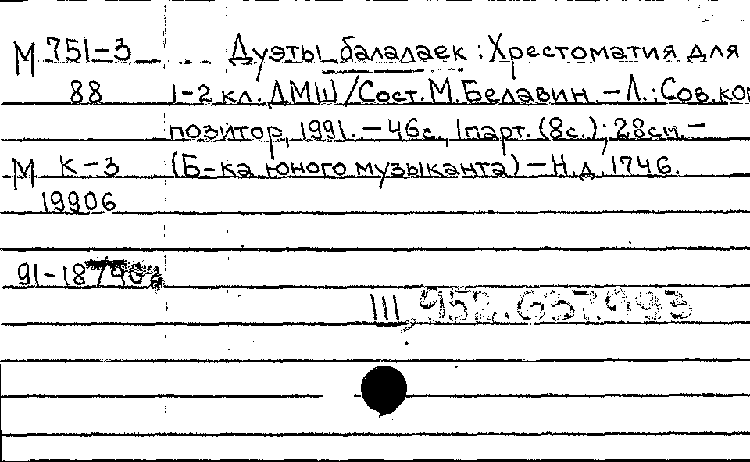 М 751-3 Дуэты балалаек : Хрестоматия для
88 1-2 кл. ДМШ / Сост. М. Белавин. - Л. : Сов. ком
позитор, 1991. - 46с., 1парт. (8с.) ; 28см. -
М К-3 (Б-ка юного музыканта) - Н.д. 1746.
19906
91-18
III, 952.637.993